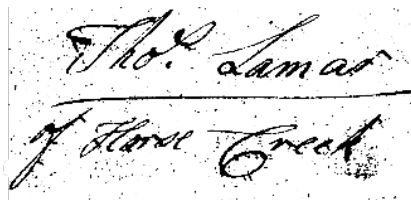 Tho.s Lamar
of Horse Creek